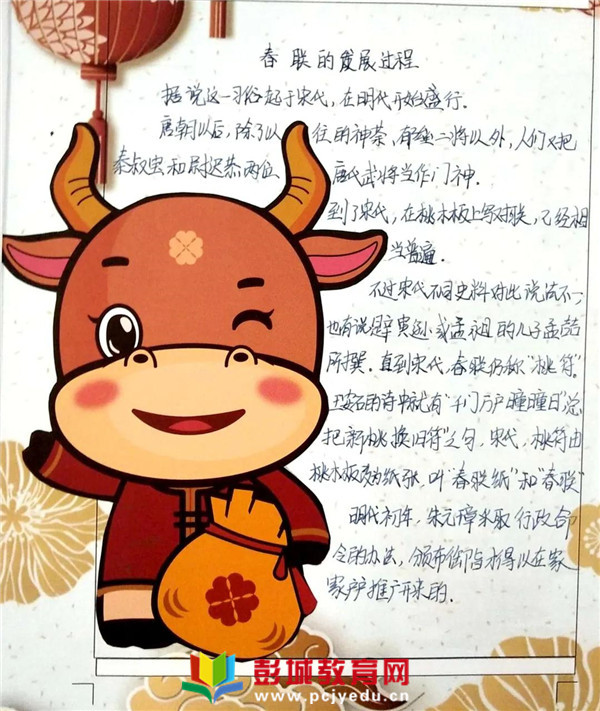 春联的发展过程
据说这一习俗起于宋代，在明代开始盛行.
唐朝以后，除了以往的神荼，郁垒二将以外，人们又把
秦叔宝和尉迟恭两位唐代武将当作门神.
到了宋代，在桃木板上写对联，已经相
当普遍.
不过宋代不同史料对此说法不一，
也有说是辛寅逊或孟昶的儿子孟喆
所撰.直到宋代，春联仍称“桃符”.
王安石的诗中就有“千门万户曈曈日，总
把新桃换旧符”之句，宋代，桃符由
桃木板改为纸张，叫“春联纸”和“春联”
明代初年，朱元璋采取行政命
令的办法，颁布御旨才得以在家
家户户推广开来的.
彭城教育网
www.pcjyedu.cn